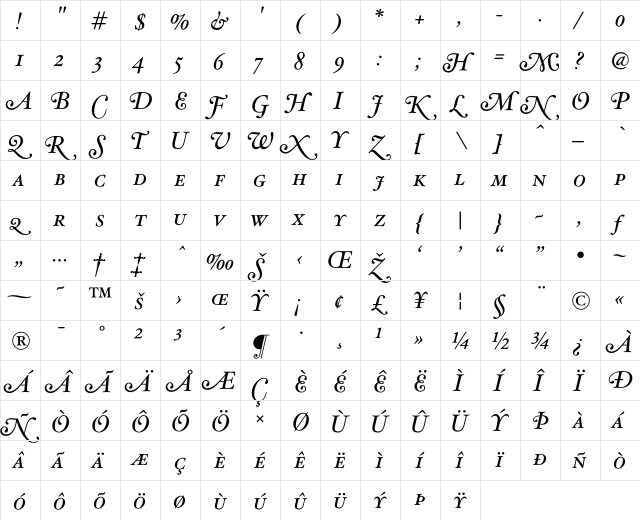 ! " # $ % & ' ( ) * + , - . / 0
1 2 3 4 5 6 7 8 9 : ; H = M ? @
A B C D E F G H I J K L M N O P
Q R S T U V W X Y Z [ \ ] ^ – `
A B C D E F G H I J K L M N O P
Q R S T U V W X Y Z { | } ~ , ƒ
„ … † ‡ ˆ ‰ Š ‹ Œ Ž ‘ ’ “ ” • –
— ˜ ™ Š › Œ Ÿ ¡ ¢ £ ¥ ¦ § ¨ © «
® ¯ ° ² ³ ´ ¶ · ¸ ¹ » ¼ ½ ¾ ¿ À
Á Â Ã Ä Å Æ Ç È É Ê Ë Ì Í Î Ï Ð
Ñ Ò Ó Ô Õ Ö × Ø Ù Ú Û Ü Ý Þ À Á
Â Ã Ä Æ Ç È É Ê Ë Ì Í Î Ï Ð Ñ Ò
Ó Ô Õ Ö Ø Ù Ú Û Ü Ý Þ Ÿ